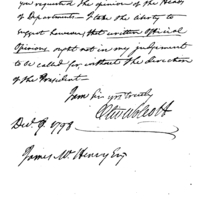 you requested the opinion of the Heads
of Department. I take the liberty to
suggest however, that written official
Opinions, ought not in my judgement
to be called for, without the direction
of the President.
I am Sir yrs truly
Oliv Wolcott
Dec 1798
James McHenry Esq